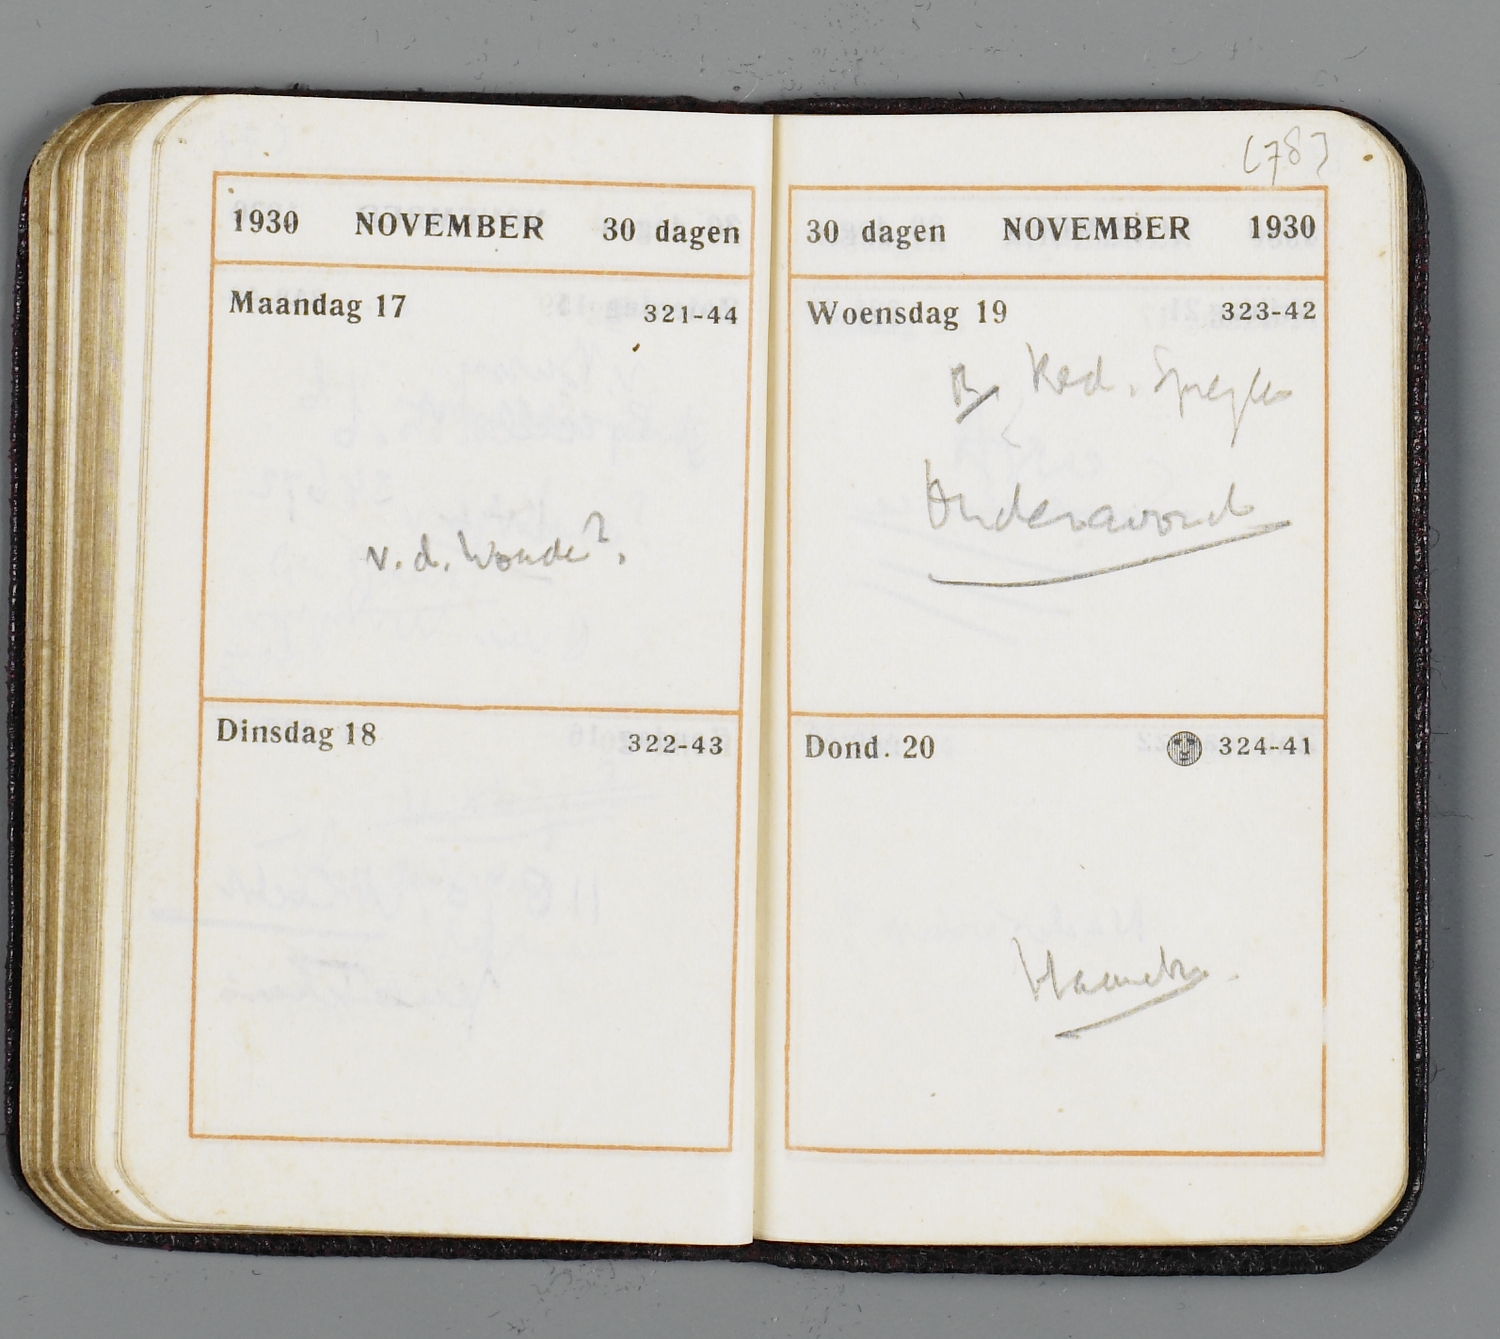 1930 NOVEMBER 30 dagen
Maandag 17 321-44
v. d. Woude?.
Dinsdag 18 322-43
[78]
30 dagen NOVEMBER 1930
Woensdag 19 323-42
Red. Spiegel
Ouderavond
Dond. 20 324-41